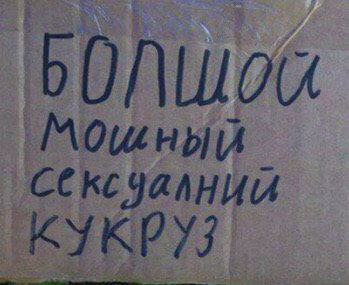 БОЛШОЙ
мошный
сексуалний
КУКРУЗ